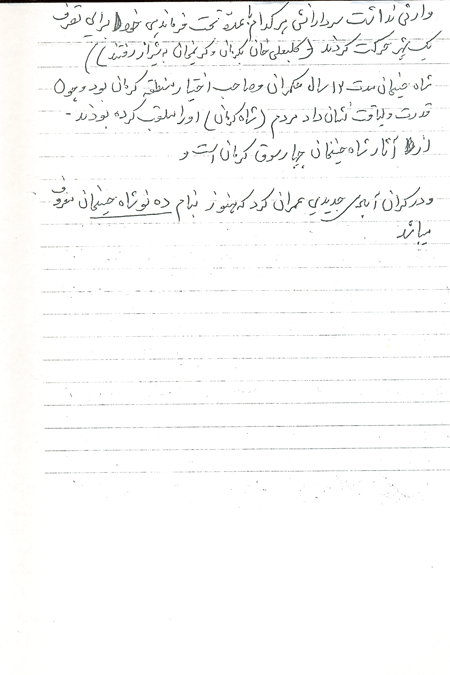 وارثی نداشت سردارانش هر کدام با عده تحت فرماندهی خود برای تصرف
یک شهر حرکت کردند (کلبعلی خان کرمان و کریمخان بشیراز رفتند)
شاه حینخان مدت ۱۲ سال حکمران و صاحب اختیار منطقه کرمان بود و چون
قدرت و لیاقت نشان داد مردم (شاه کرمان) او را ملقب کرده بودند -
از آثار شاه حینخان چهارسوق کرمان است و
و در کران آبادی جدیدی عمران کرد که هنوز بنام ده نو شاه حینخان معروف
میباشد